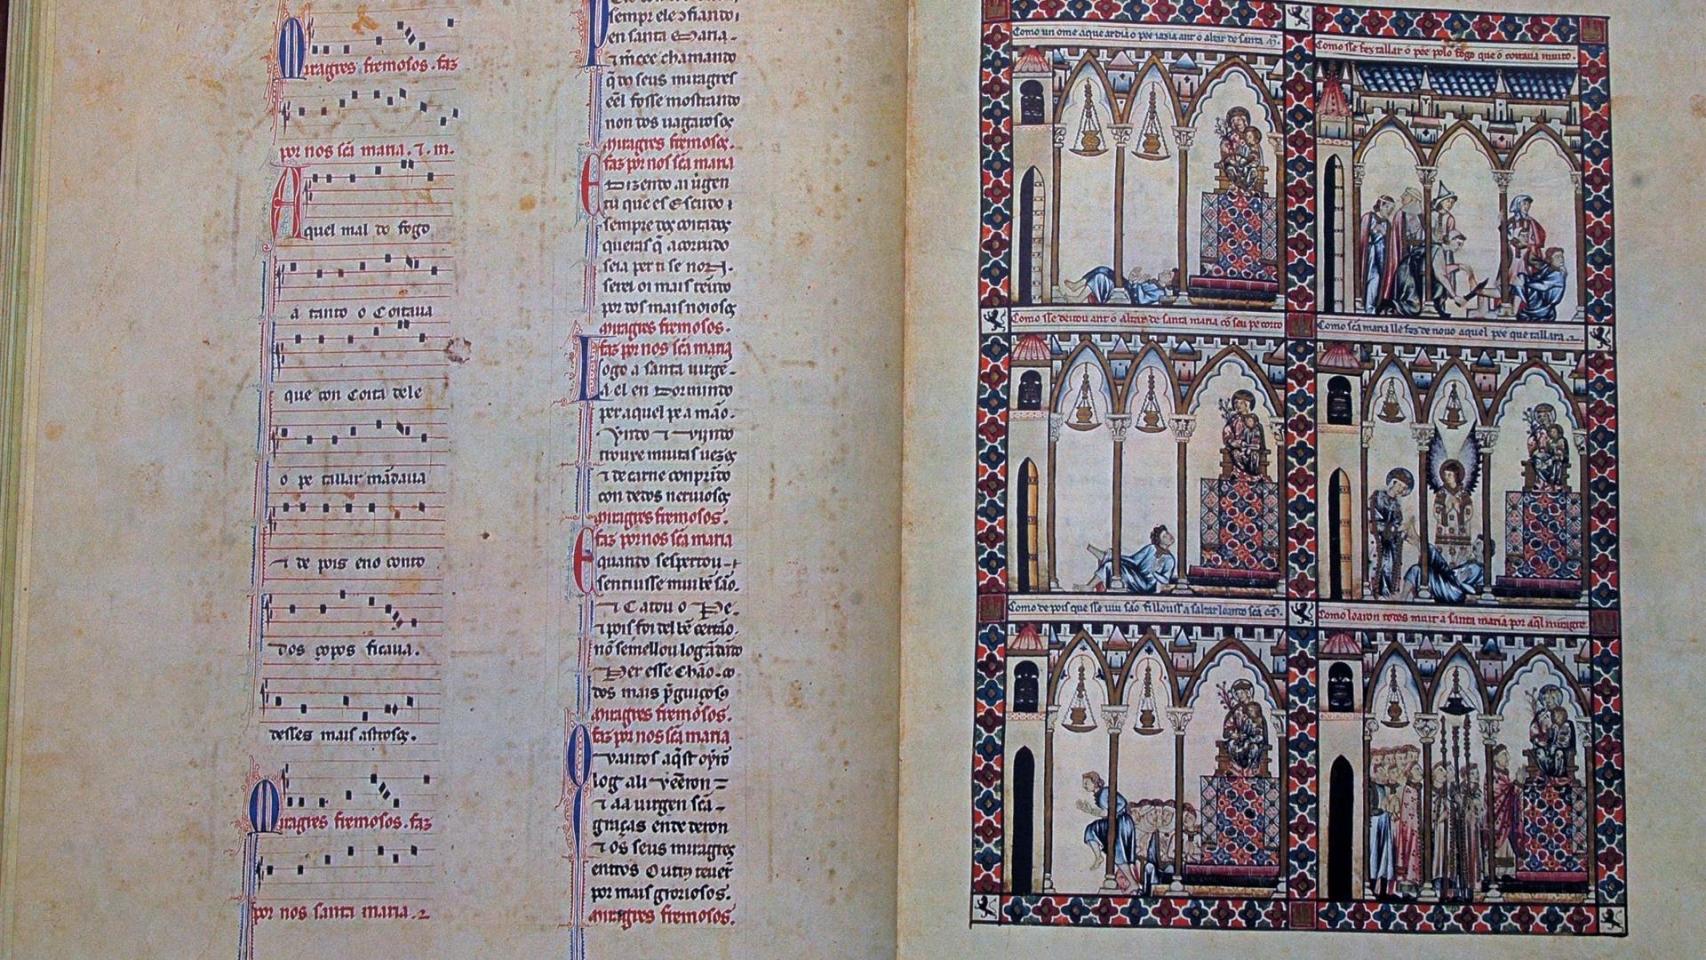 Miragres fremosos. faz
por nos sc̃a maria. ⁊. m.
Aquel mal do fogo
a tanto o Coitaua
que con Coita dele
o pe tallar mãdaua
⁊ de pois eno conto
dos çopos ficaua.
desses mais astrosos.
Miragres fremosos. faz
por nos santa maria. ⁊
sempr ele ⁊ fiando
en santa Maria.
⁊ m̃cee chamando
q̃do seus miragres
eel fosse mostrando
non dos uagarosos
Miragres fremosos.
faz por nos sc̃a maria
E dizendo ai uirgen
tu que es Escudo
sempre dos coitados
queras q̃ acorrudo
seia per ti se non.
serei oi mais tẽudo
por dos mais noiosos
Miragres fremosos.
faz por nos sc̃a maria
Logo a santa uirgẽ
a el en dormindo
per aquel pe a mão.
yndo ⁊ uĩjndo
trouxe muitas uezes
⁊ de carne conprĩdo
con dedos neruiosos
Miragres fremosos.
faz por nos sc̃a maria
E quando sespertou
sentiusse mui bẽ são.
⁊ Catou o Pe.
⁊ pois foi del bẽ certão.
nõ semellou log ãdãdo
Per esse Chão.
dos mais p̃guiçosos
Miragres fremosos.
faz por nos sc̃a maria
Quantos aq̃st oyrõ
log ali uẽeron
⁊ aa uirgen sc̃a
graças ende deron
⁊ os seus miragres
entros Outro teuerõ
por mais groriosos.
Miragres fremosos.
Como un ome a que ardia o pee iazia ant o altar de santa M.
Como sse fez tallar o pee polo fogo que o coitaua muito.
Como sse deitou ant o altar de santa maria cõ seu pe corto
Como sc̃a maria lle fez de nouo aquel pee que tallara.
Como de pois que sse uiu sao fillouss a saltar loando sc̃a M.
Como loaron todos muit a santa maria por aq̃l miragre.